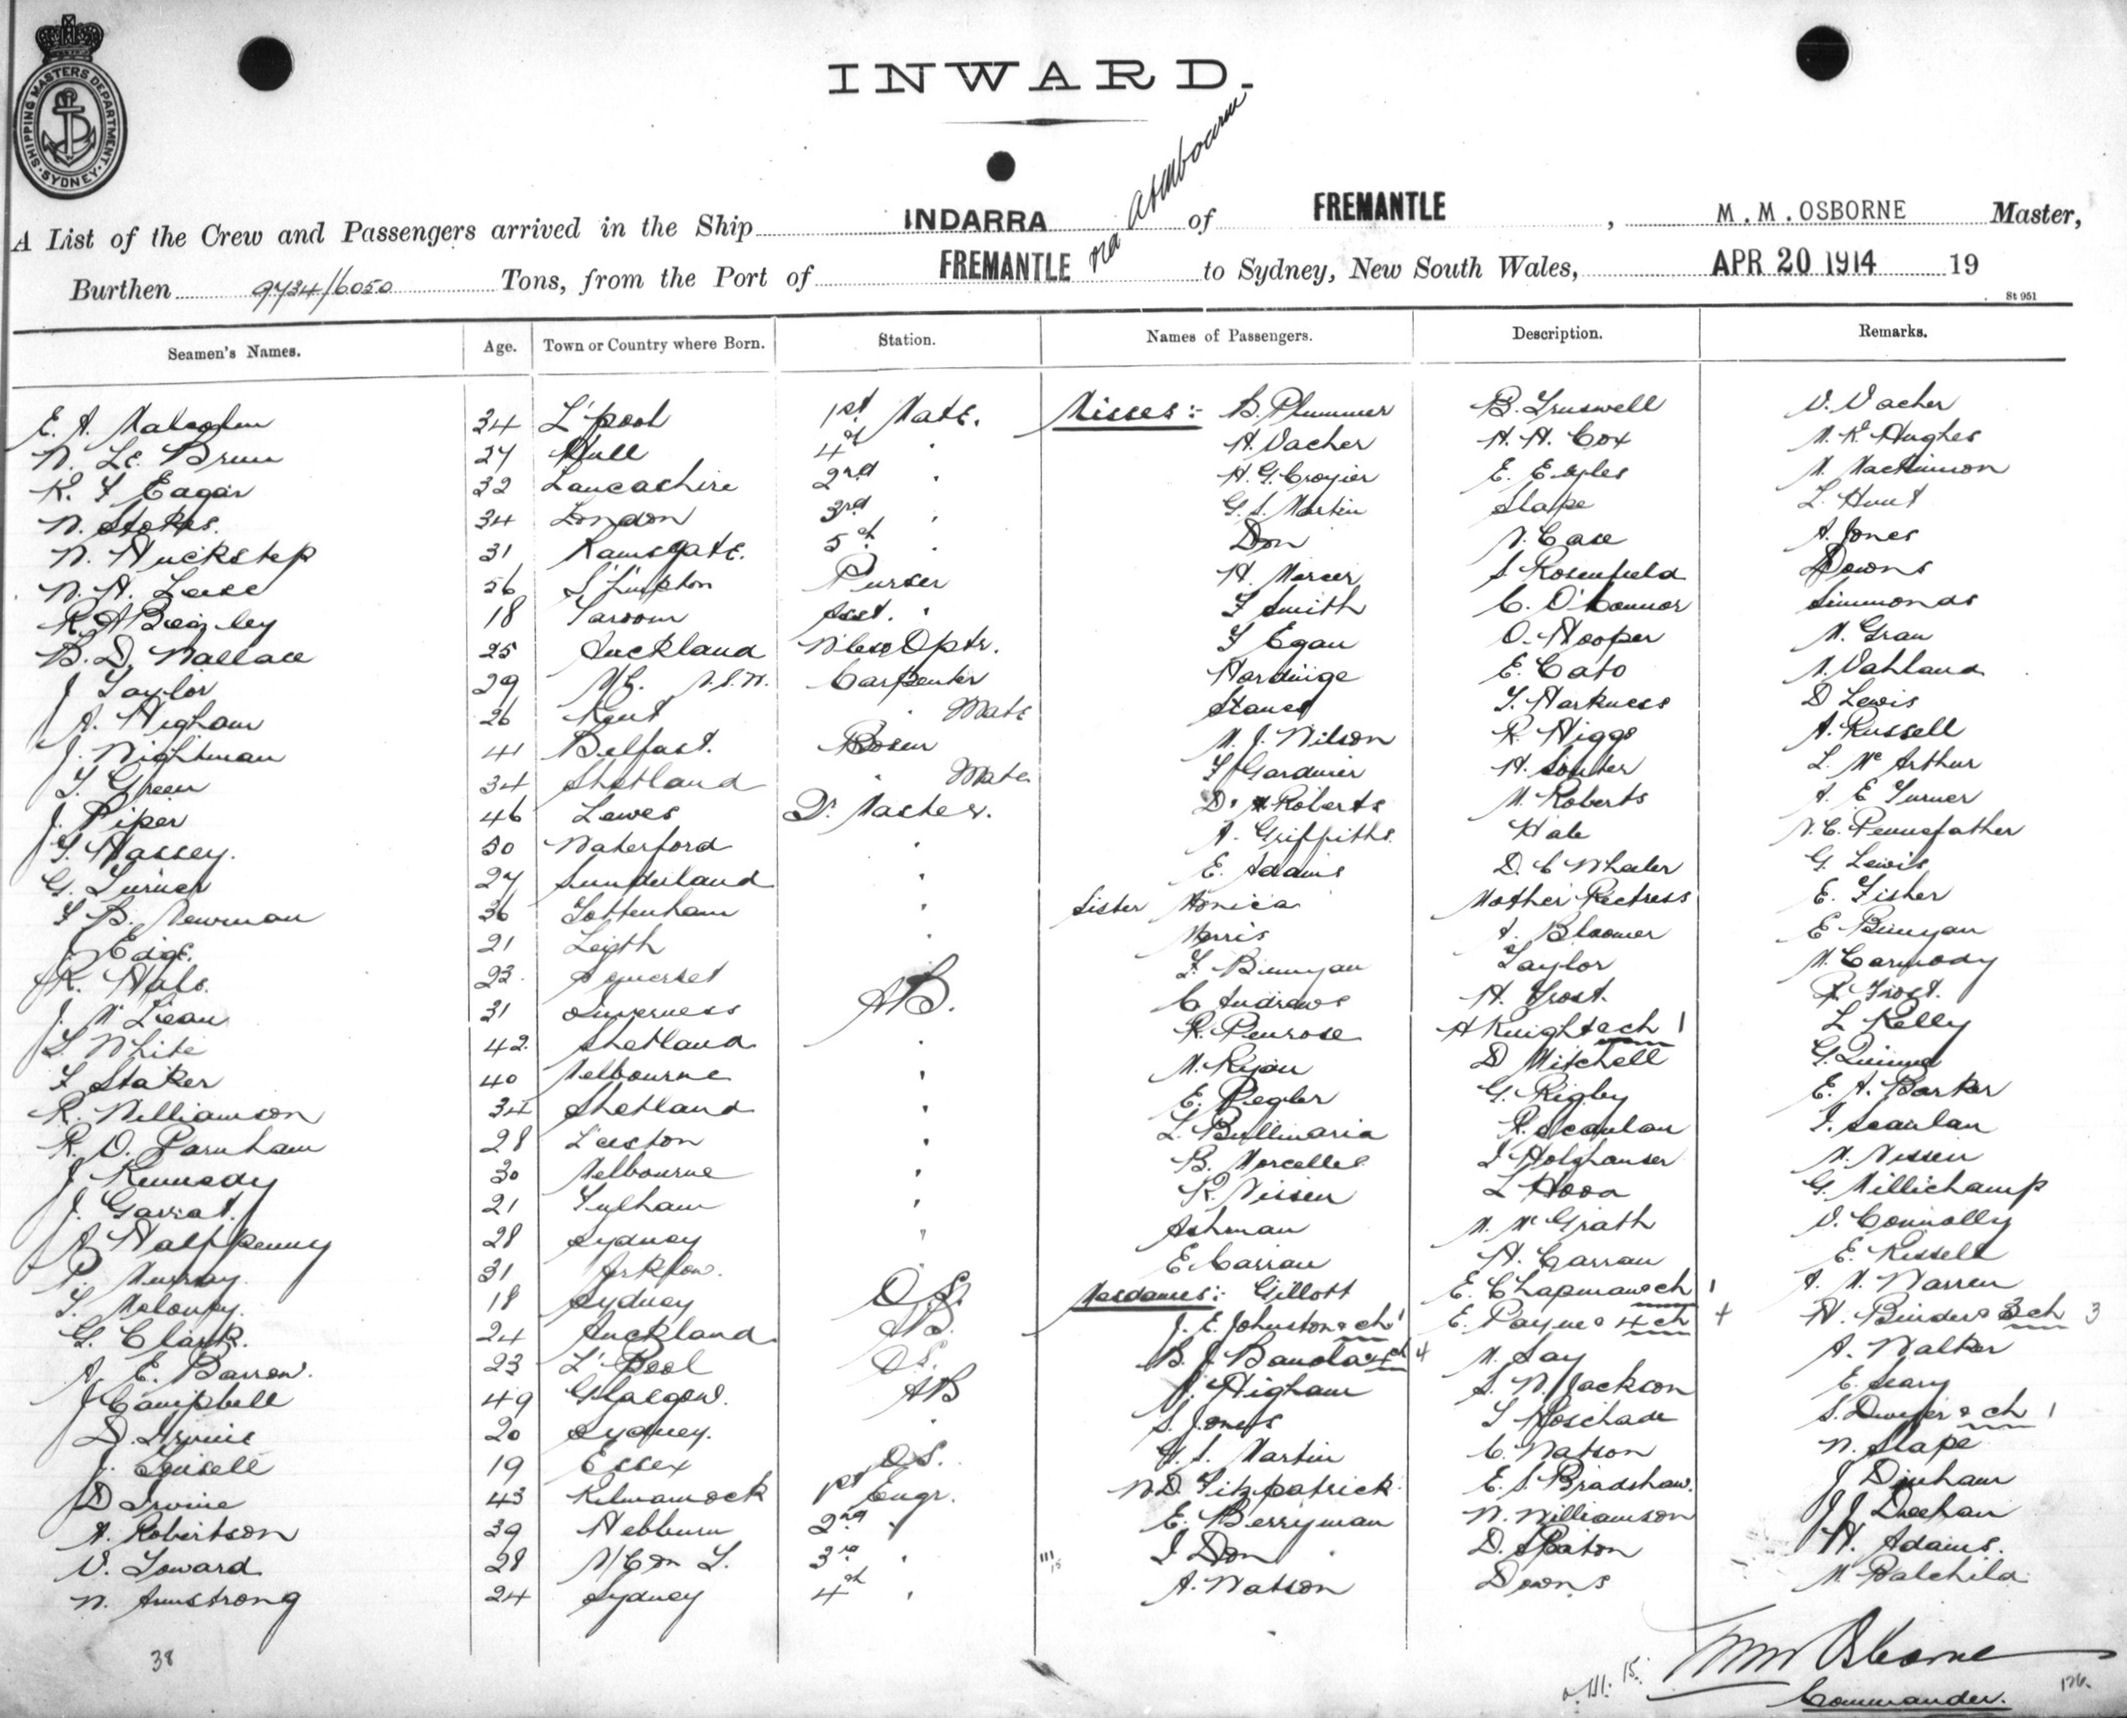 SHIPPING MASTERS DEPARTMENT · SYDNEY ·
INWARD.
via Melbourne
A List of the Crew and Passengers arrived in the Ship INDARRA of FREMANTLE, M. M. OSBORNE Master,
Burthen 9734/6050 Tons, from the Port of FREMANTLE to Sydney, New South Wales, APR 20 1914 19
St 951
Seamen's Names. Age. Town or Country where Born. Station. Names of Passengers. Description. Remarks.
E. A. Malcolm 34 L'pool 1st Mate. Misses :- B. Plummer B. Truswell V. Vacher
W. Le Brun 27 Hull 4th " H. Vacher H. H. Cox M. K. Hughes
K. F Eagar 32 Lancashire 2nd " H. G. Crozier E. Eyles M. Mackinnon
W. Stokes. 34 London 3rd " G. S. Martin Slape L. Hunt
W. Huckstep 31 Ramsgate. 5th " Don V. Case A. Jones
W. H. Lease 56 S'Hmpton Purser H. Mercer S Rosenfield Downs
R. A Beazley 18 Taroom Asst. " F Smith C. O'Connor Simmonds
B. D. Wallace 25 Auckland Wless Optr. F Egan O. Hooper M. Gran
J Taylor 29 N.S.W. Carpenter Hardinge E. Cato M. Vahland
A. Higham 26 Kent " Mate Stanes T. Harkness D Lewis
J. Wightman 41 Belfast. Bosun M. J. Wilson R. Higgs A. Russell
T. Green 34 Shetland " Mate F Gardiner H. Souter L. Mc Arthur
J. Piper 46 Lewes Q. Master. D. Roberts M. Roberts A. E Turner
T. Hassey. 50 Waterford " A. Griffiths Hale N. C. Pennefather
G. Turner 27 Sunderland " E. Adams D. C Wheeler G. Lewis
F B. Newman 36 Tottenham " Sister Monica Mother Rectress E. Fisher
J. Edge. 21 Leith " Morris A. Bloomer E Bunyan
R. Hals. 23 Somerset F. Bunyan Taylor M. Carmody
J. Mc Lean 31 Inverness AB. C Andrews H. Frost. Frost.
T. White 42 Shetland " R. Penrose A Knight & ch 1 L Kelly
F Staker 40 Melbourne " M. Ryan D Mitchell G. Quinn
R. Williamson 34 Shetland " E. Pegler G. Rigby E. A. Barker
R. O. Parnham 28 Leiston " L. Bullinaria R. Scanlan I. Scanlan
J Kennedy 30 Melbourne " B. Morcelles I Holzhauser M. Nissen
J. Garrat. 21 Fulham " R. Nissen L Hood G. Millichamp
A Halfpenny 28 Sydney " Ashman M. Mc Grath V. Connolly
P. Murray. 31 Arklow. E. Carran H. Carran E. Russell
T. Moloney. 18 Sydney O S. Mesdames :- Gillott E. Chapman & ch 1 A. M. Warren
G. Clark. 24 Auckland AB. J. E. Johnston & ch 1 E. Payne & 4 ch 4 H. Binder & 3 ch 3
A. E. Barron. 23 L'Pool O S. B. J. & 4 ch 4 M. Say A. Walker
J Campbell 49 Glasgow. AB J. Higham S. W. Jackson E. Seary
D. Irvine 20 Sydney. " S. Jones T Moschade S. Dwyer & ch 1
J. 19 Essex O S. G. S. Martin C. Watson W. Slape
D Irvine 43 Kilmarnock 1st Engr. W. D. Fitzpatrick E. S. Bradshaw. J Dinham
A. Robertson 39 Hebburn 2nd " E. Berryman W. Williamson J. J Sheehan
V. Toward 28 N'C on T. 3rd " I Don D. Paton H. Adams.
W. Armstrong 24 Sydney 4th " A. Watson Downs M. Balchila
38
M M Osborne
Commander.
126.